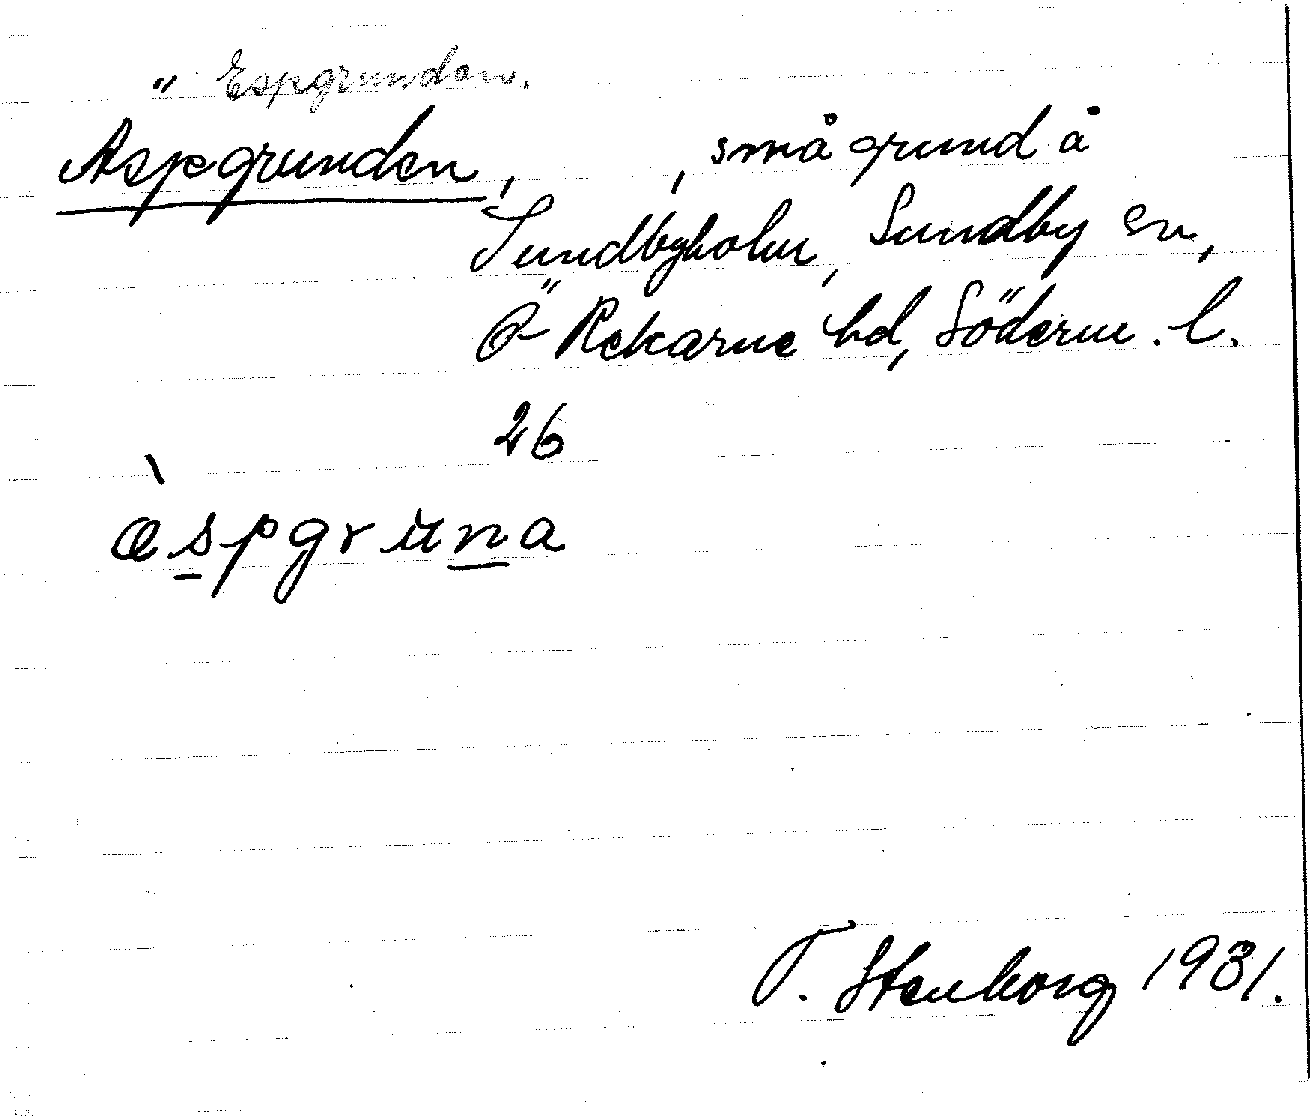 " Espgrunden.
Aspgrunden, , små grund å
Sundbyholm, Sundby sn,
Ö Rekarne hd, Söderm. l.
26
æ̀spgruna
T. Stenborg 1931.